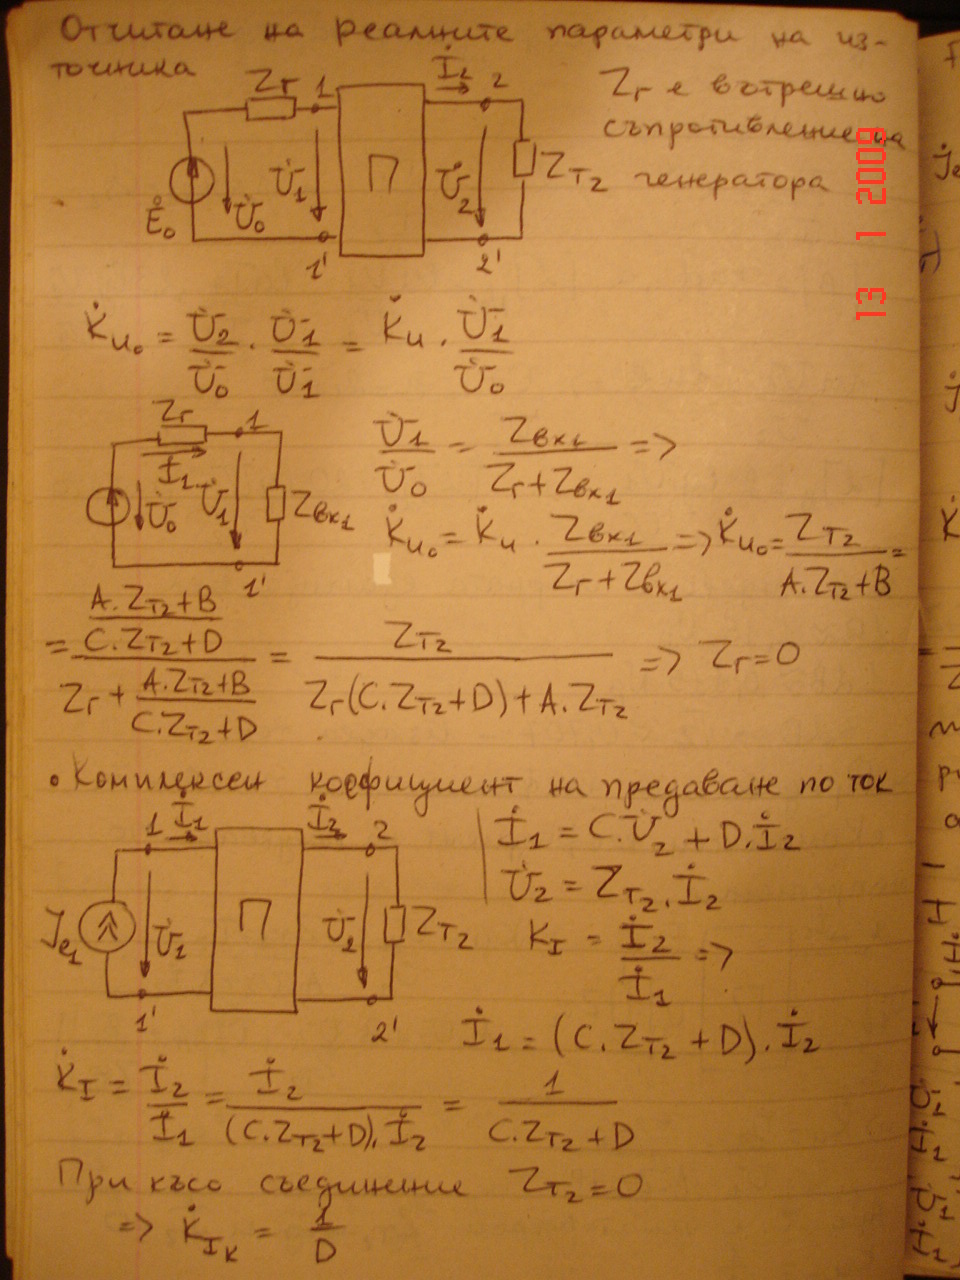 Отчитане на реалните параметри на из-
точника
Zг 1 İ₂ 2
Zг е вътрешно
съпротивление на
генератора
Ė₀ U̇₀ U̇₁ П U̇₂ Z_T₂
1' 2'
13 1 2009
K̇u₀ = U̇₂/U̇₀ . U̇₁/U̇₁ = K̇u . U̇₁/U̇₀
Zг 1
İ₁
U̇₀ U̇₁ Zвх₁
1'
U̇₁/U̇₀ = Zвх₁/(Zг+Zвх₁) =>
K̇u₀ = K̇u . Zвх₁/(Zг+Zвх₁) => K̇u₀ = Z_T₂/(A.Z_T₂+B) =
= ((A.Z_T₂+B)/(C.Z_T₂+D))/(Zг + (A.Z_T₂+B)/(C.Z_T₂+D)) = Z_T₂/(Zг(C.Z_T₂+D)+A.Z_T₂) => Zг=0
• Комплексен коефициент на предаване по ток
1 İ₁ İ₂ 2
Je₁ U̇₁ П U̇₂ Z_T₂
1' 2'
İ₁ = C.U̇₂ + D.İ₂
U̇₂ = Z_T₂.İ₂
K_I = İ₂/İ₁ =>
İ₁ = (C.Z_T₂ + D).İ₂
K̇_I = İ₂/İ₁ = İ₂/((C.Z_T₂+D).İ₂) = 1/(C.Z_T₂+D)
При късо съединение Z_T₂=0
=> K̇_Iк = 1/D